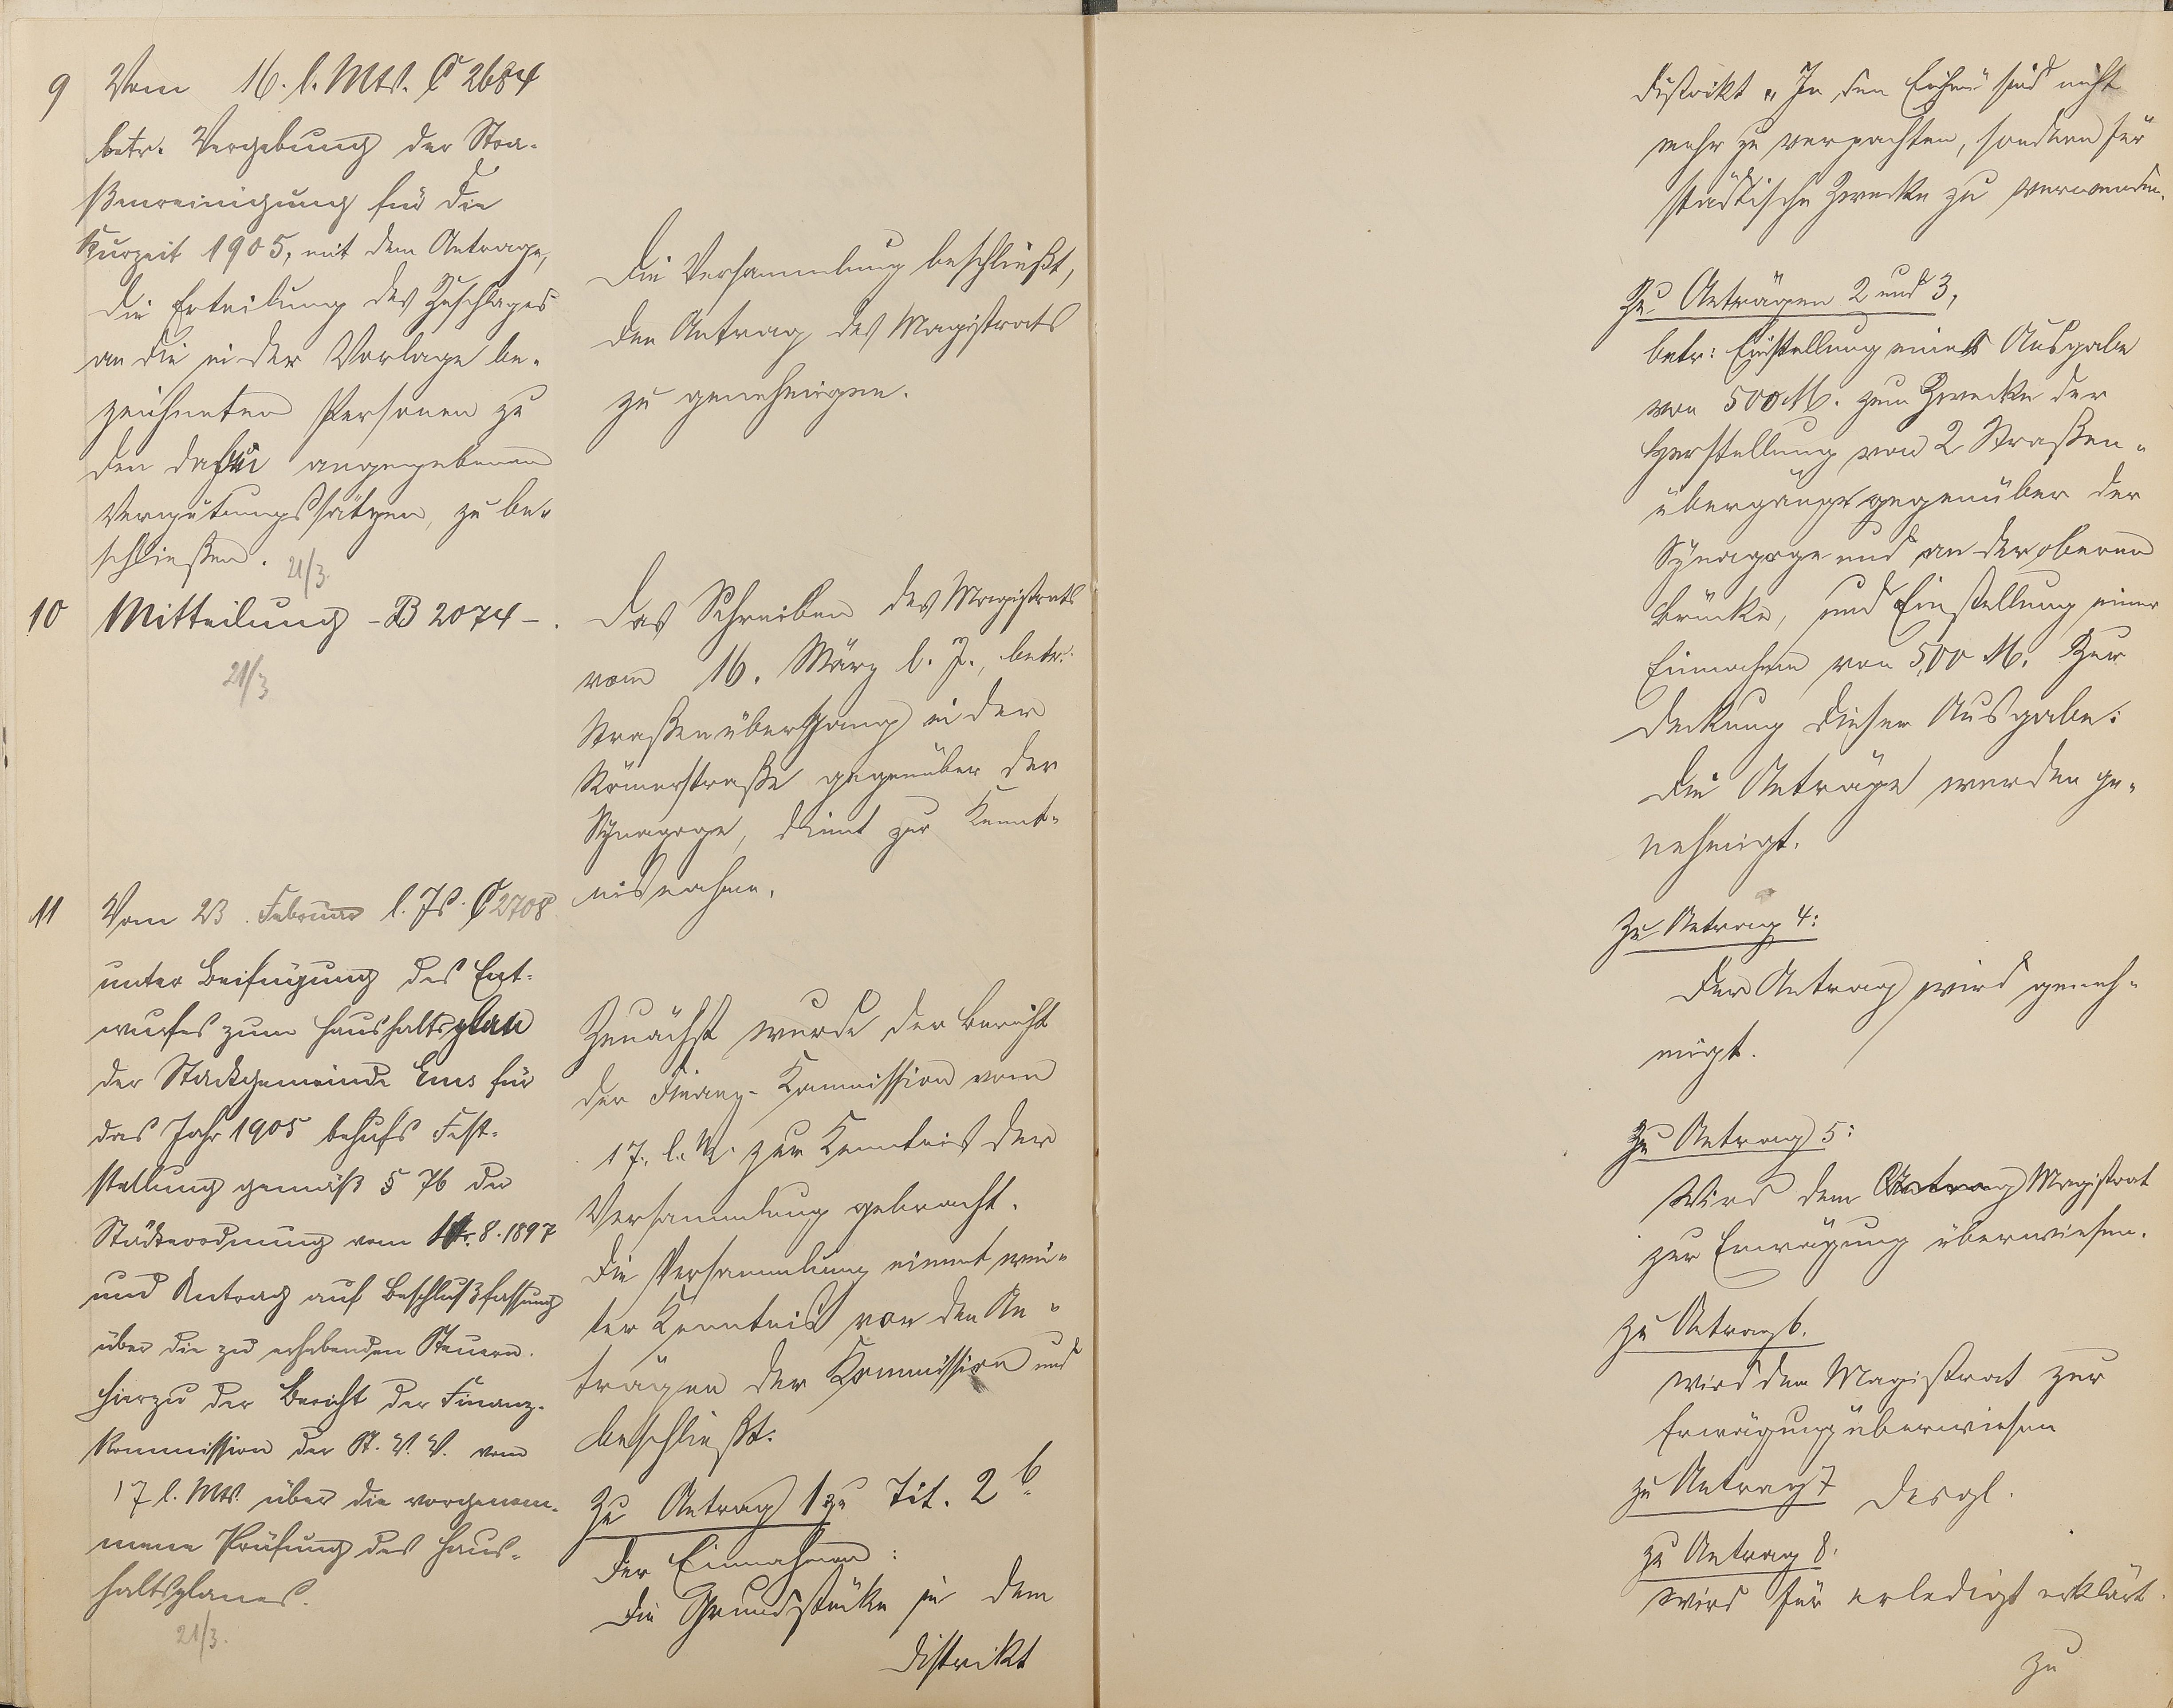 9 Vom 16. l. Mts. C 2684
betr. Vergebung der Stra-
ßenreinigung für die
Kurzeit 1905, mit dem Antrage,
die Erteilung des Zuschlages
an die in der Vorlage be-
zeichneten Personen zu
den dafür angegebenen
Vergütungssätzen, zu be-
schließen. 21/3.
Die Versammlung beschließt,
den Antrag des Magistrats
zu genehmigen.
10 Mitteilung - B 2074 -.
21/3
Das Schreiben des Magistrats
vom 16. März l. J., betr.
Straßenübergang in der
Römerstraße gegenüber der
Synagoge, dient zur Kennt-
nisnahme.
11 Vom 23. Februar l. Js. C 2708
unter Beifügung des Ent-
wurfes zum Haushaltsplan
der Stadtgemeinde Ems für
das Jahr 1905 behufs Fest-
stellung gemäß § 76 der
Städteordnung vom 4.8.1897
und Antrag auf Beschlußfassung
über die zu erhebenden Steuern.
Hierzu der Bericht der Finanz-
Kommission der St. V. V. vom
17 l. Mts. über die vorgenom-
mene Prüfung des Haus-
haltsplanes.
21/3.
Zunächst wurde der Bericht
der Finanz-Kommission vom
17. l. M. zur Kenntnis der
Versammlung gebracht.
Die Versammlung nimmt wei-
ter Kenntnis von den An-
trägen der Kommission und
beschließt:
Zu Antrag 1 zu Tit. 2 b
der Einnahmen:
Die Grundstücke in dem
Distrikt
Distrikt „In den Eichen" sind nicht
mehr zu verpachten, sondern für
städtische Zwecke zu verwenden.
Zu Anträgen 2 und 3,
betr: Einstellung einer Ausgabe
von 500 M. zum Zwecke der
Herstellung von 2 Straßen-
übergänge gegenüber der
Synagoge und an der oberen
Brücke, und Einstellung einer
Einnahme von 500 M. Zur
Deckung dieser Ausgabe:
Die Anträge werden ge-
nehmigt.
Zu Antrag 4:
Der Antrag wird geneh-
migt.
Zu Antrag 5:
Wird dem Antrag Magistrat
zur Erwägung überwiesen.
Zu Antrag 6.
Wird dem Magistrat zur
Erwägung überwiesen
zu Antrag 7 Desgl.
zu Antrag 8.
Wird für erledigt erklärt.
zu